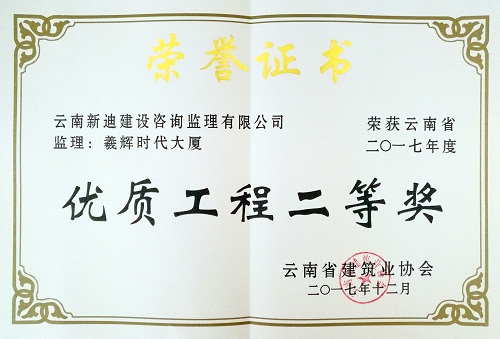 荣誉证书
云南新迪建设咨询监理有限公司 荣获云南省
监理：羲辉时代大厦 二〇一七年度
优质工程二等奖
云南省建筑业协会
二〇一七年十二月